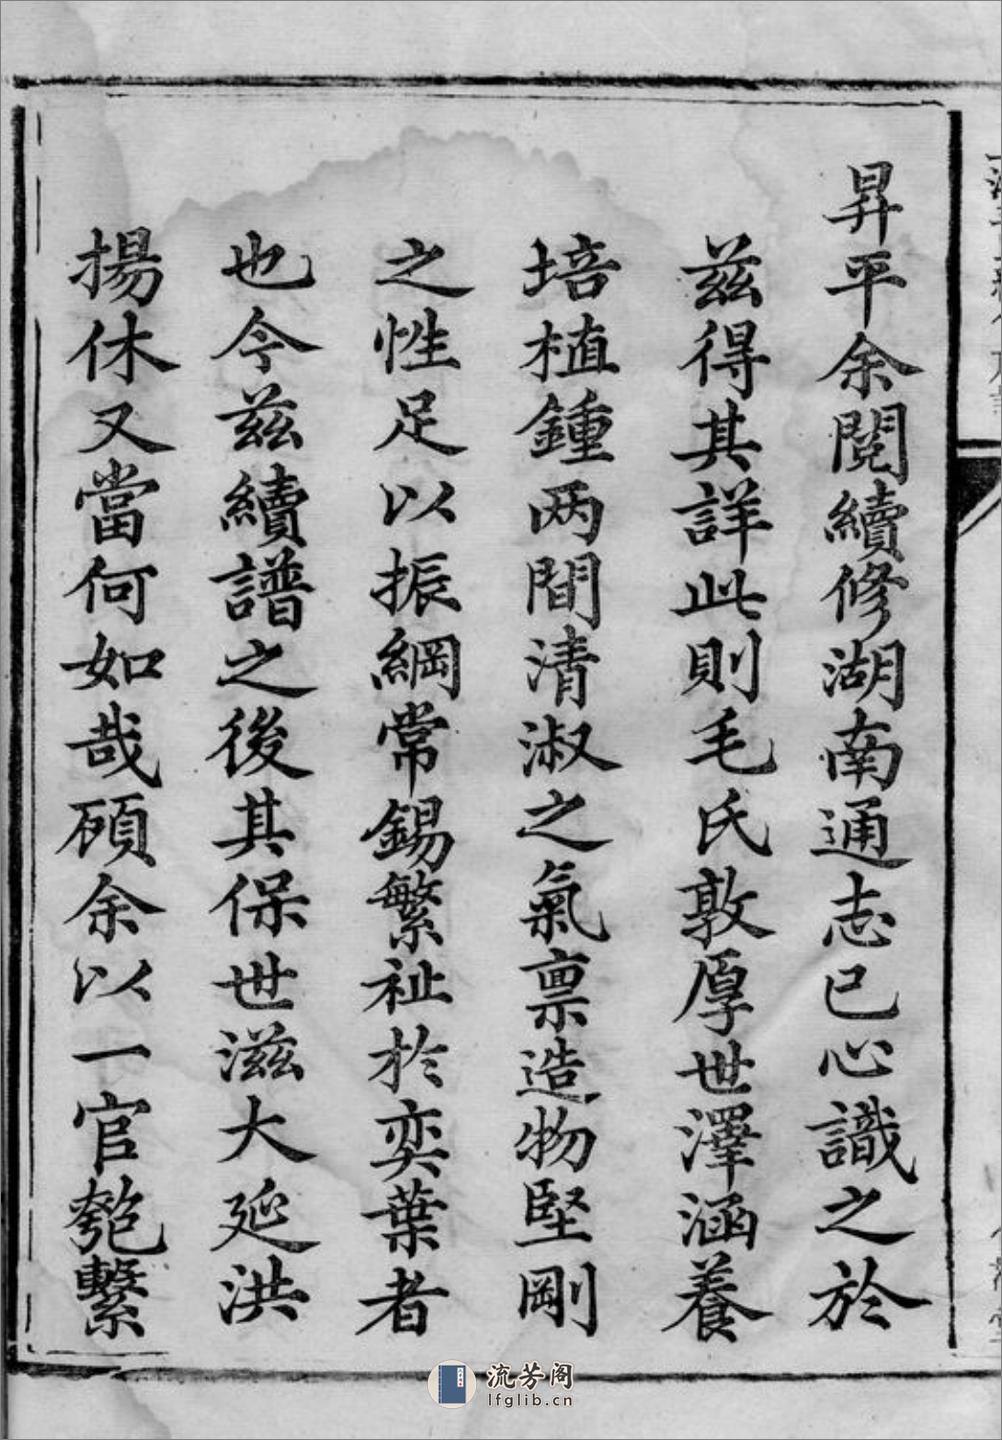 昇平余閱續修湖南通志已心識之於
茲得其詳此則毛氏敦厚世澤涵養
培植鍾两間清淑之氣禀造物堅剛
之性足以振綱常錫繁祉於奕葉者
也今茲續譜之後其保世滋大延洪
揚休又當何如哉顧余以一官匏繫
流芳阁
lfglib.cn